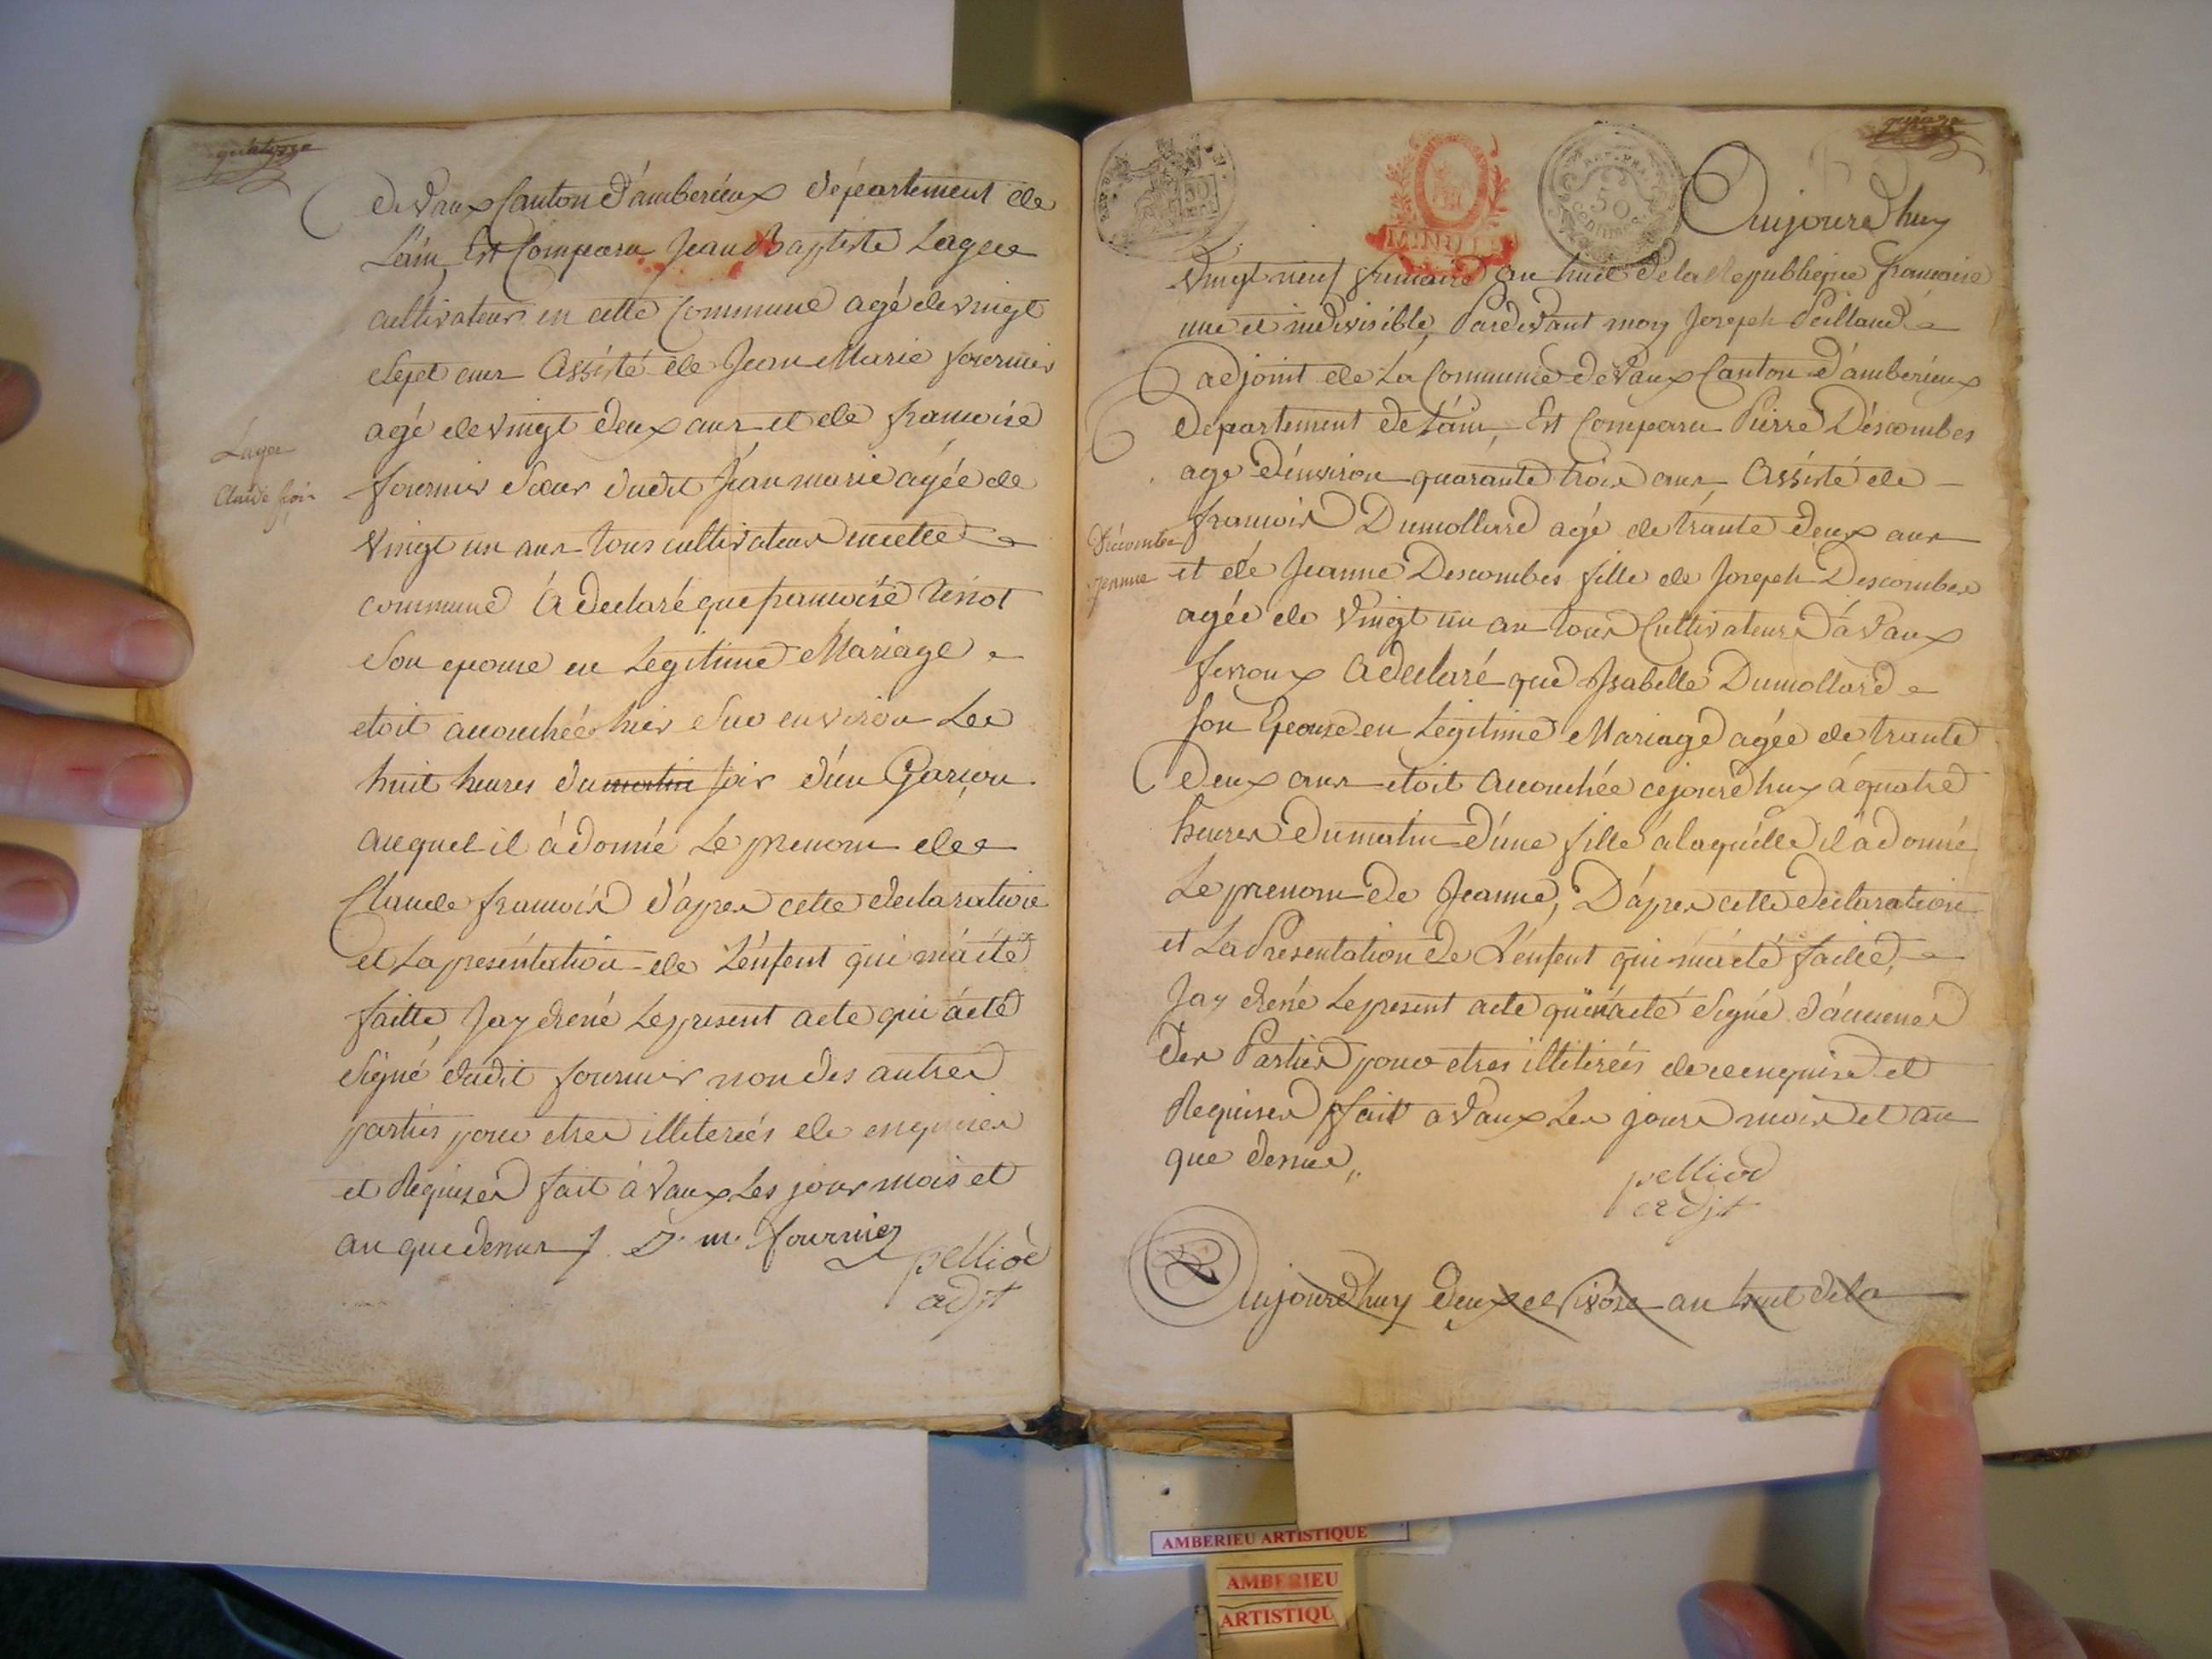 de Vaux Canton d'amberieux département de
L'ain, Est Comparu Jean Baptiste Lager
cultivateur en cette Commune agé de vingt
Sept ans Assisté de Jean Marie fournier
agé de vingt deux ans et de francoise
Lager
Claude frois
fournier Sœur dudit Jean marie agée de
vingt un ans tous cultivateurs en cette
commune à declaré que francoise
Son epouse en Legitime Mariage
etoit accouchée hier Sur environ Les
huit heures du matin soir d'un Garçon
auquel il à donné Le prenom de
Claude francois d'apres cette declaration
et La presentation de L'enfent qui m'à été
faitte, Jay dressé Le present acte qui à eté
Signé dudit fournier non des autres
parties pour etres illiterées de enquises
et Requises fait à Vaux Les jour mois et
an que dessus J. m. fournier
pelliod
adjt
50
MINUTE
50
centimes
Aujourd'huy
vingt neuf frimaire an huit de la Republique francaise
une et indivisible, Pardevant moy Joseph Peilliaud
adjoint de La Commune de Vaux Canton d'amberieux
Departement de l'ain, Est Comparu Pierre Descombes
agé d'environ quarante trois ans, Assisté de
francois Dumollard agé de trante deux ans
Descombes
jeanne
et de Jeanne Descombes fille de Joseph Descombes
agée de vingt un an tous Cultivateurs à Vaux
fevroux A declaré que Isabelle Dumollard
son Epouse en Legitime Mariage agée de trante
Deux ans etoit accouchée cejourd'huy à quatre
heures du matin d'une fille à laquelle il à donné
Le prenom de Jeanne, D'apres cette declaration
et La Presentation de L'enfent qui m'à eté faitte,
Jay dressé Le present acte qui n'à eté Signé d'aucunes
des Parties pour etres illiterées de ce enquises et
Requises fait a Vaux Les jours mois et an
que dessus,,
pelliod
adjt
Aujourd'huy deux nivose an huit de la
AMBERIEU ARTISTIQUE
AMBERIEU
ARTISTIQU